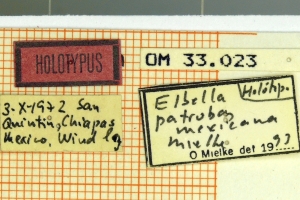 HOLOTYPUS
OM 33.023
3-X-1972 San
Quintin, Chiapas
Mexico, Wind
Holótip.
Elbella
patrobas
mexicana
Mielke 93
O Mielke det 19.....